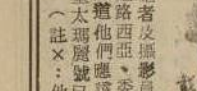 者及攝影員
路西亞、委
道他們應
太瑪麗號
（註×…他